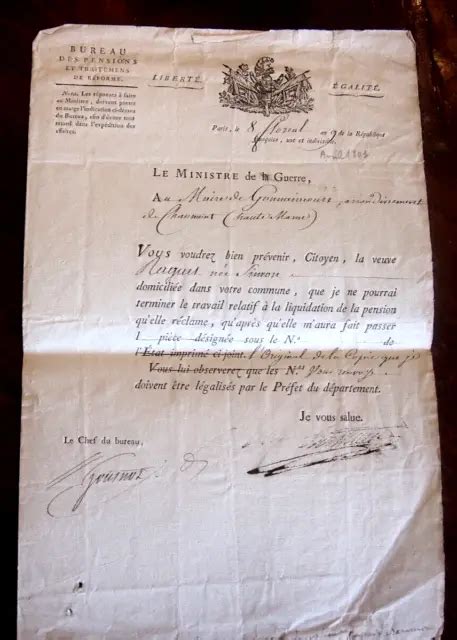 BUREAU
DES PENSIONS
ET TRAITEMENS
DE RÉFORME.
LIBERTÉ.
ÉGALITÉ.
NOTA. Les réponses à faire
au Ministre, devront porter
en marge l'indication ci-dessus
du Bureau, afin d'éviter tout
retard dans l'expédition des
affaires.
Paris, le 8 floreal an 9 de la République
française, une et indivisible.
LE MINISTRE de la Guerre,
Au Maire de arrondissement
de Chaumont (haute Marne)
Vous voudrez bien prévenir, Citoyen, la veuve
Huguet née
domiciliée dans votre commune, que je ne pourrai
terminer le travail relatif à la liquidation de la pension
qu'elle réclame, qu'après qu'elle m'aura fait passer
1 pièce désignée sous le N.° de
l'État imprimé ci-joint. l'Original de la Copie que je
Vous lui observerez que les N.os Vous renvoye
doivent être légalisés par le Préfet du département.
Je vous salue.
Le Chef du bureau,